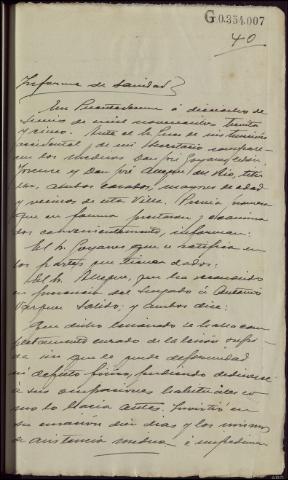 G 0.354.007
40
Informe de sanidad
En Puentedeume á dieciocho de
Junio de mil novecientos treinta
y cinco. Ante el Sr. Juez de instrucción
accidental y de mi Secretario comparecen
los Médicos Don José
y Don José Allegue del Río, titulares,
ambos casados, mayores de edad
y vecinos de esta Villa. Previa promesa
que en forma prestaron y examinados
convenientemente, informan:
El Sr. Goyanes que se ratifica en
los partes que tiene dados:
El Sr. Allegue, que ha reconocido
en presencia del Juzgado á Antonio
Vázquez Salido; y ambos dice:
Que dicho lesionado se halla completamente
curado de la lesión sufrida
sin que le quede deformidad
ni defecto físico, pudiendo dedicarse
á sus ocupaciones habituales como
lo hacía antes. Invirtió en
su curación diez días y los mismos
de asistencia médica é impedimen